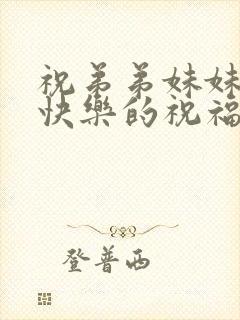 祝弟弟妹妹
快樂的祝福
登普西